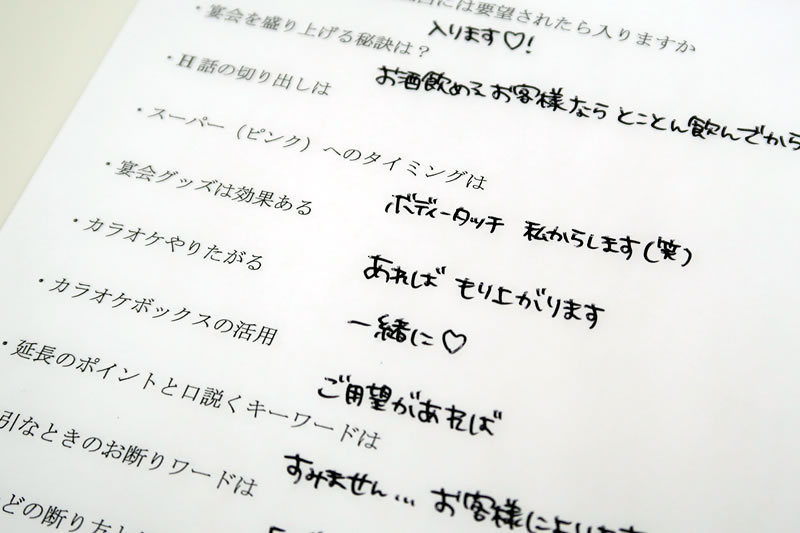 には要望されたら入りますか
入ります♡!
・宴会を盛り上げる秘訣は?
お酒飲めるお客様なら とことん飲んでから
・H話の切り出しは
・スーパー(ピンク)へのタイミングは
ボディータッチ 私からします(笑)
・宴会グッズは効果ある
あれば もり上がります
・カラオケやりたがる
一緒に♡
・カラオケボックスの活用
ご用望があれば
・延長のポイントと口説くキーワードは
すみません... お客様によります
引なときのお断りワードは
どの断り方